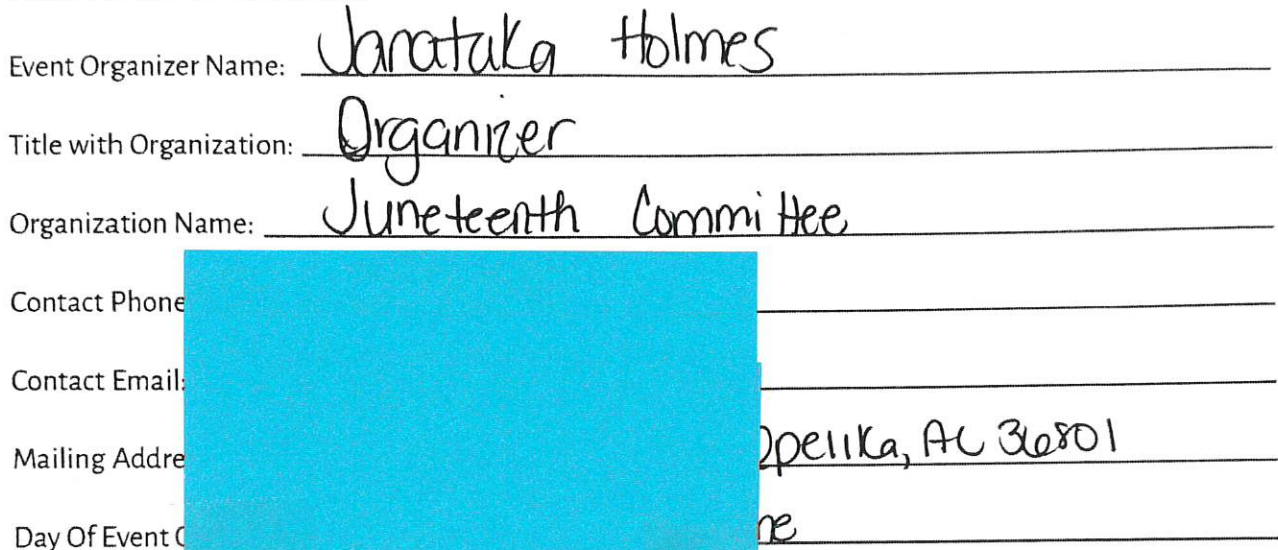 Event Organizer Name: Janataka Holmes
Title with Organization: Organizer
Organization Name: Juneteenth Committee
Contact Phone
Contact Email:
Mailing Addre Opelika, AL 36801
Day Of Event